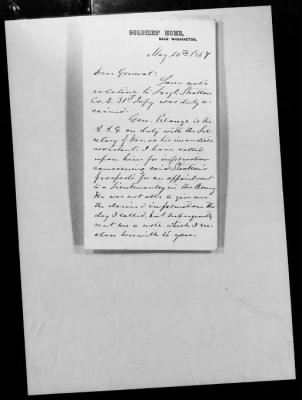 SOLDIERS' HOME,
NEAR WASHINGTON.
May 20th 1867
Dear General:
Your note
relative to Sergt. Stratton
Co. D. 31st Infy was duly re-
ceived.
Gen. is the
A. A. G. on duty with the Sec-
retary of War as his immediate
assistant. I have called
upon him for information
concerning said Stratton's
prospects for an appointment
to a Lieutenantcy in the Army.
He was not able to give me
the desired information the
day I called, but subsequently
sent me a note, which I en-
close herewith to you.